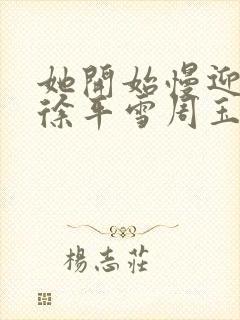 她開始慢迎
徐平雪周玉
楊志莊